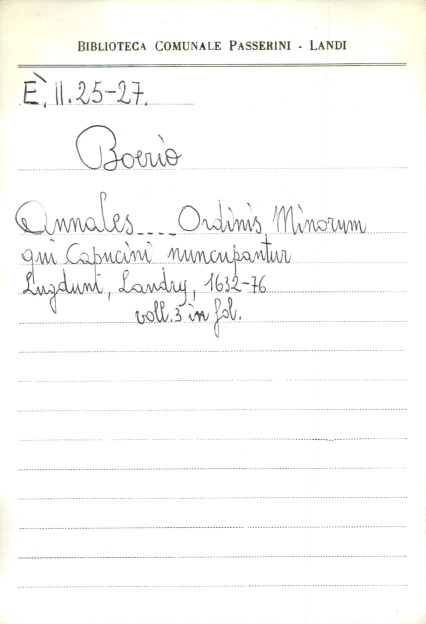 BIBLIOTECA COMUNALE PASSERINI - LANDI
È. II. 25-27.
Boerio
Annales.... Ordinis Minorum
qui Capucini nuncupantur
Lugduni, Landry, 1632-76
voll. 3 in fol.